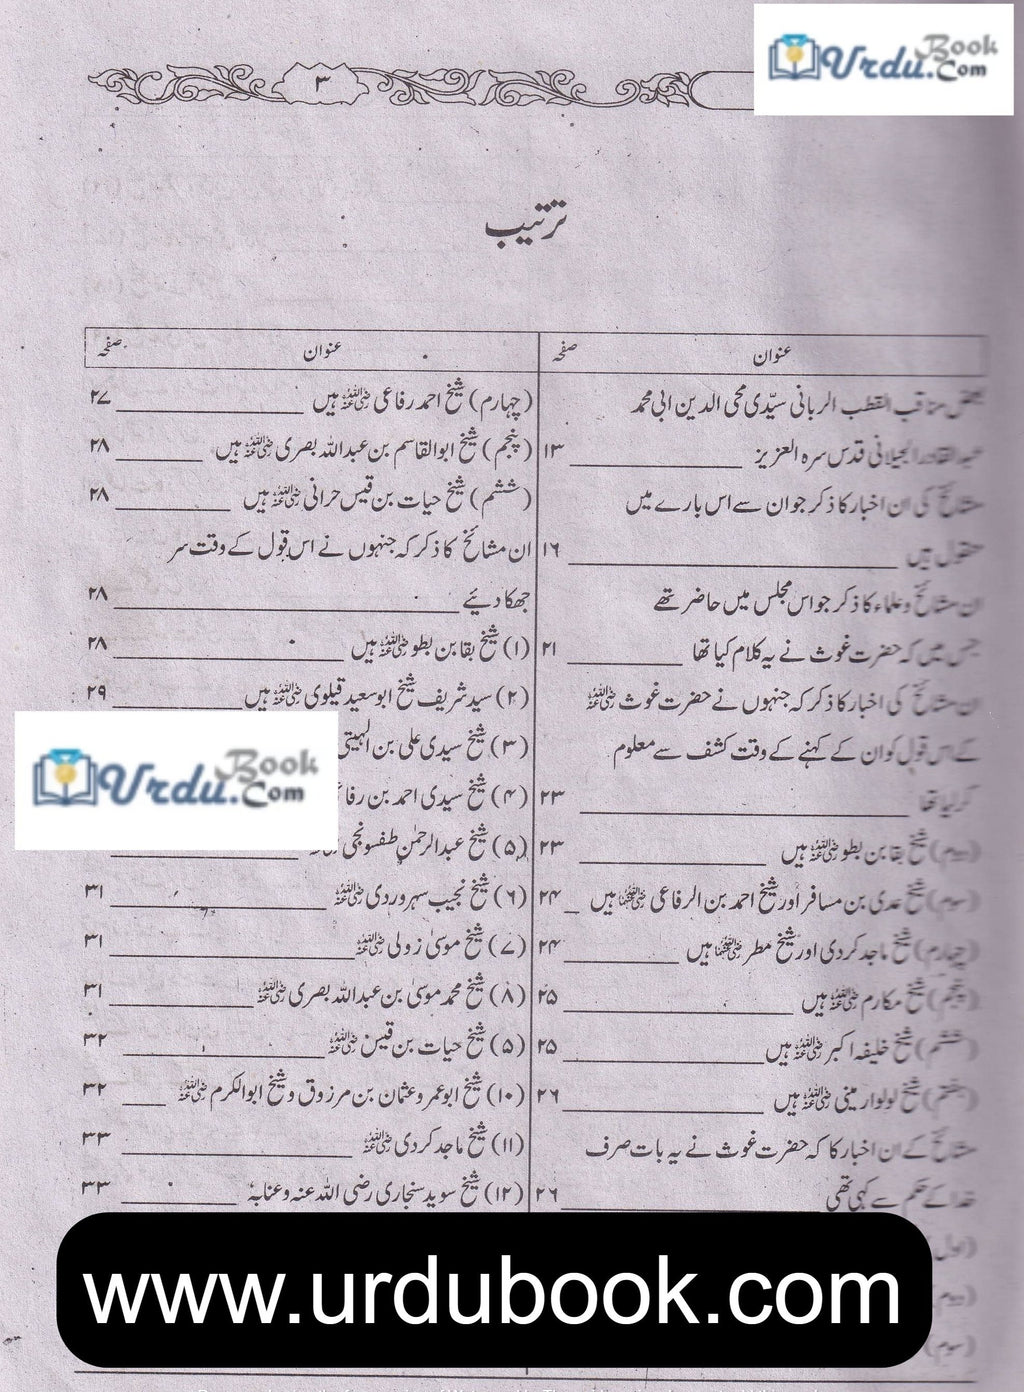 Urdu Book .Com
۳
ترتیب
عنوان صفحہ
بعض مناقب القطب الربانی سیّدی محی الدین ابی محمد
عبدالقادر الجیلانی قدس سرہ العزیز ۱۳
مشائخ کی ان اخبار کا ذکر جو ان سے اس بارے میں
منقول ہیں ۱۶
ان مشائخ و علماء کا ذکر جو اس مجلس میں حاضر تھے
جس میں کہ حضرت غوث نے یہ کلام کیا تھا ۲۱
ان مشائخ کی اخبار کا ذکر کہ جنہوں نے حضرت غوث رضی اللہ عنہ
کے اس قول کو ان کے کہنے کے وقت کشف سے معلوم
کر لیا تھا ۲۳
(دوم) شیخ بقا بن بطو رضی اللہ عنہ ہیں ۲۳
(سوم) شیخ عدی بن مسافر اور شیخ احمد بن الرفاعی رضی اللہ عنہما ہیں ۲۴
(چہارم) شیخ ماجد کردی اور شیخ مطر رضی اللہ عنہما ہیں ۲۴
(پنجم) شیخ مکارم رضی اللہ عنہ ہیں ۲۵
(ششم) شیخ خلیفہ اکبر رضی اللہ عنہ ہیں ۲۵
(ہفتم) شیخ لولوار مینی رضی اللہ عنہ ہیں ۲۶
مشائخ کے ان اخبار کا کہ حضرت غوث نے یہ بات صرف
خدا کے حکم سے کہی تھی ۲۶
(اول)
(دوم)
(سوم)
عنوان صفحہ
(چہارم) شیخ احمد رفاعی رضی اللہ عنہ ہیں ۲۷
(پنجم) شیخ ابوالقاسم بن عبداللہ بصری رضی اللہ عنہ ہیں ۲۸
(ششم) شیخ حیات بن قیس حرانی رضی اللہ عنہ ہیں ۲۸
ان مشائخ کا ذکر کہ جنہوں نے اس قول کے وقت سر
جھکا دئیے ۲۸
(۱) شیخ بقا بن بطو رضی اللہ عنہ ہیں ۲۸
(۲) سید شریف شیخ ابوسعید قیلوی رضی اللہ عنہ ہیں ۲۹
(۳) شیخ سیدی علی بن الہیتی
(۴) شیخ سیدی احمد بن
(۵) شیخ عبدالرحمٰن طفسونجی
(۶) شیخ نجیب سہروردی رضی اللہ عنہ ۳۱
(۷) شیخ موسیٰ زولی رضی اللہ عنہ ۳۱
(۸) شیخ محمد موسیٰ بن عبداللہ بصری رضی اللہ عنہ ۳۱
(۵) شیخ حیات بن قیس رضی اللہ عنہ ۳۲
(۱۰) شیخ ابو عمرو عثمان بن مرزوق و شیخ ابوالکرم رضی اللہ عنہ ۳۲
(۱۱) شیخ ماجد کردی رضی اللہ عنہ ۳۳
(۱۲) شیخ سوید سنجاری رضی اللہ عنہ و عنابہ ۳۳
Urdu Book .Com
www.urdubook.com